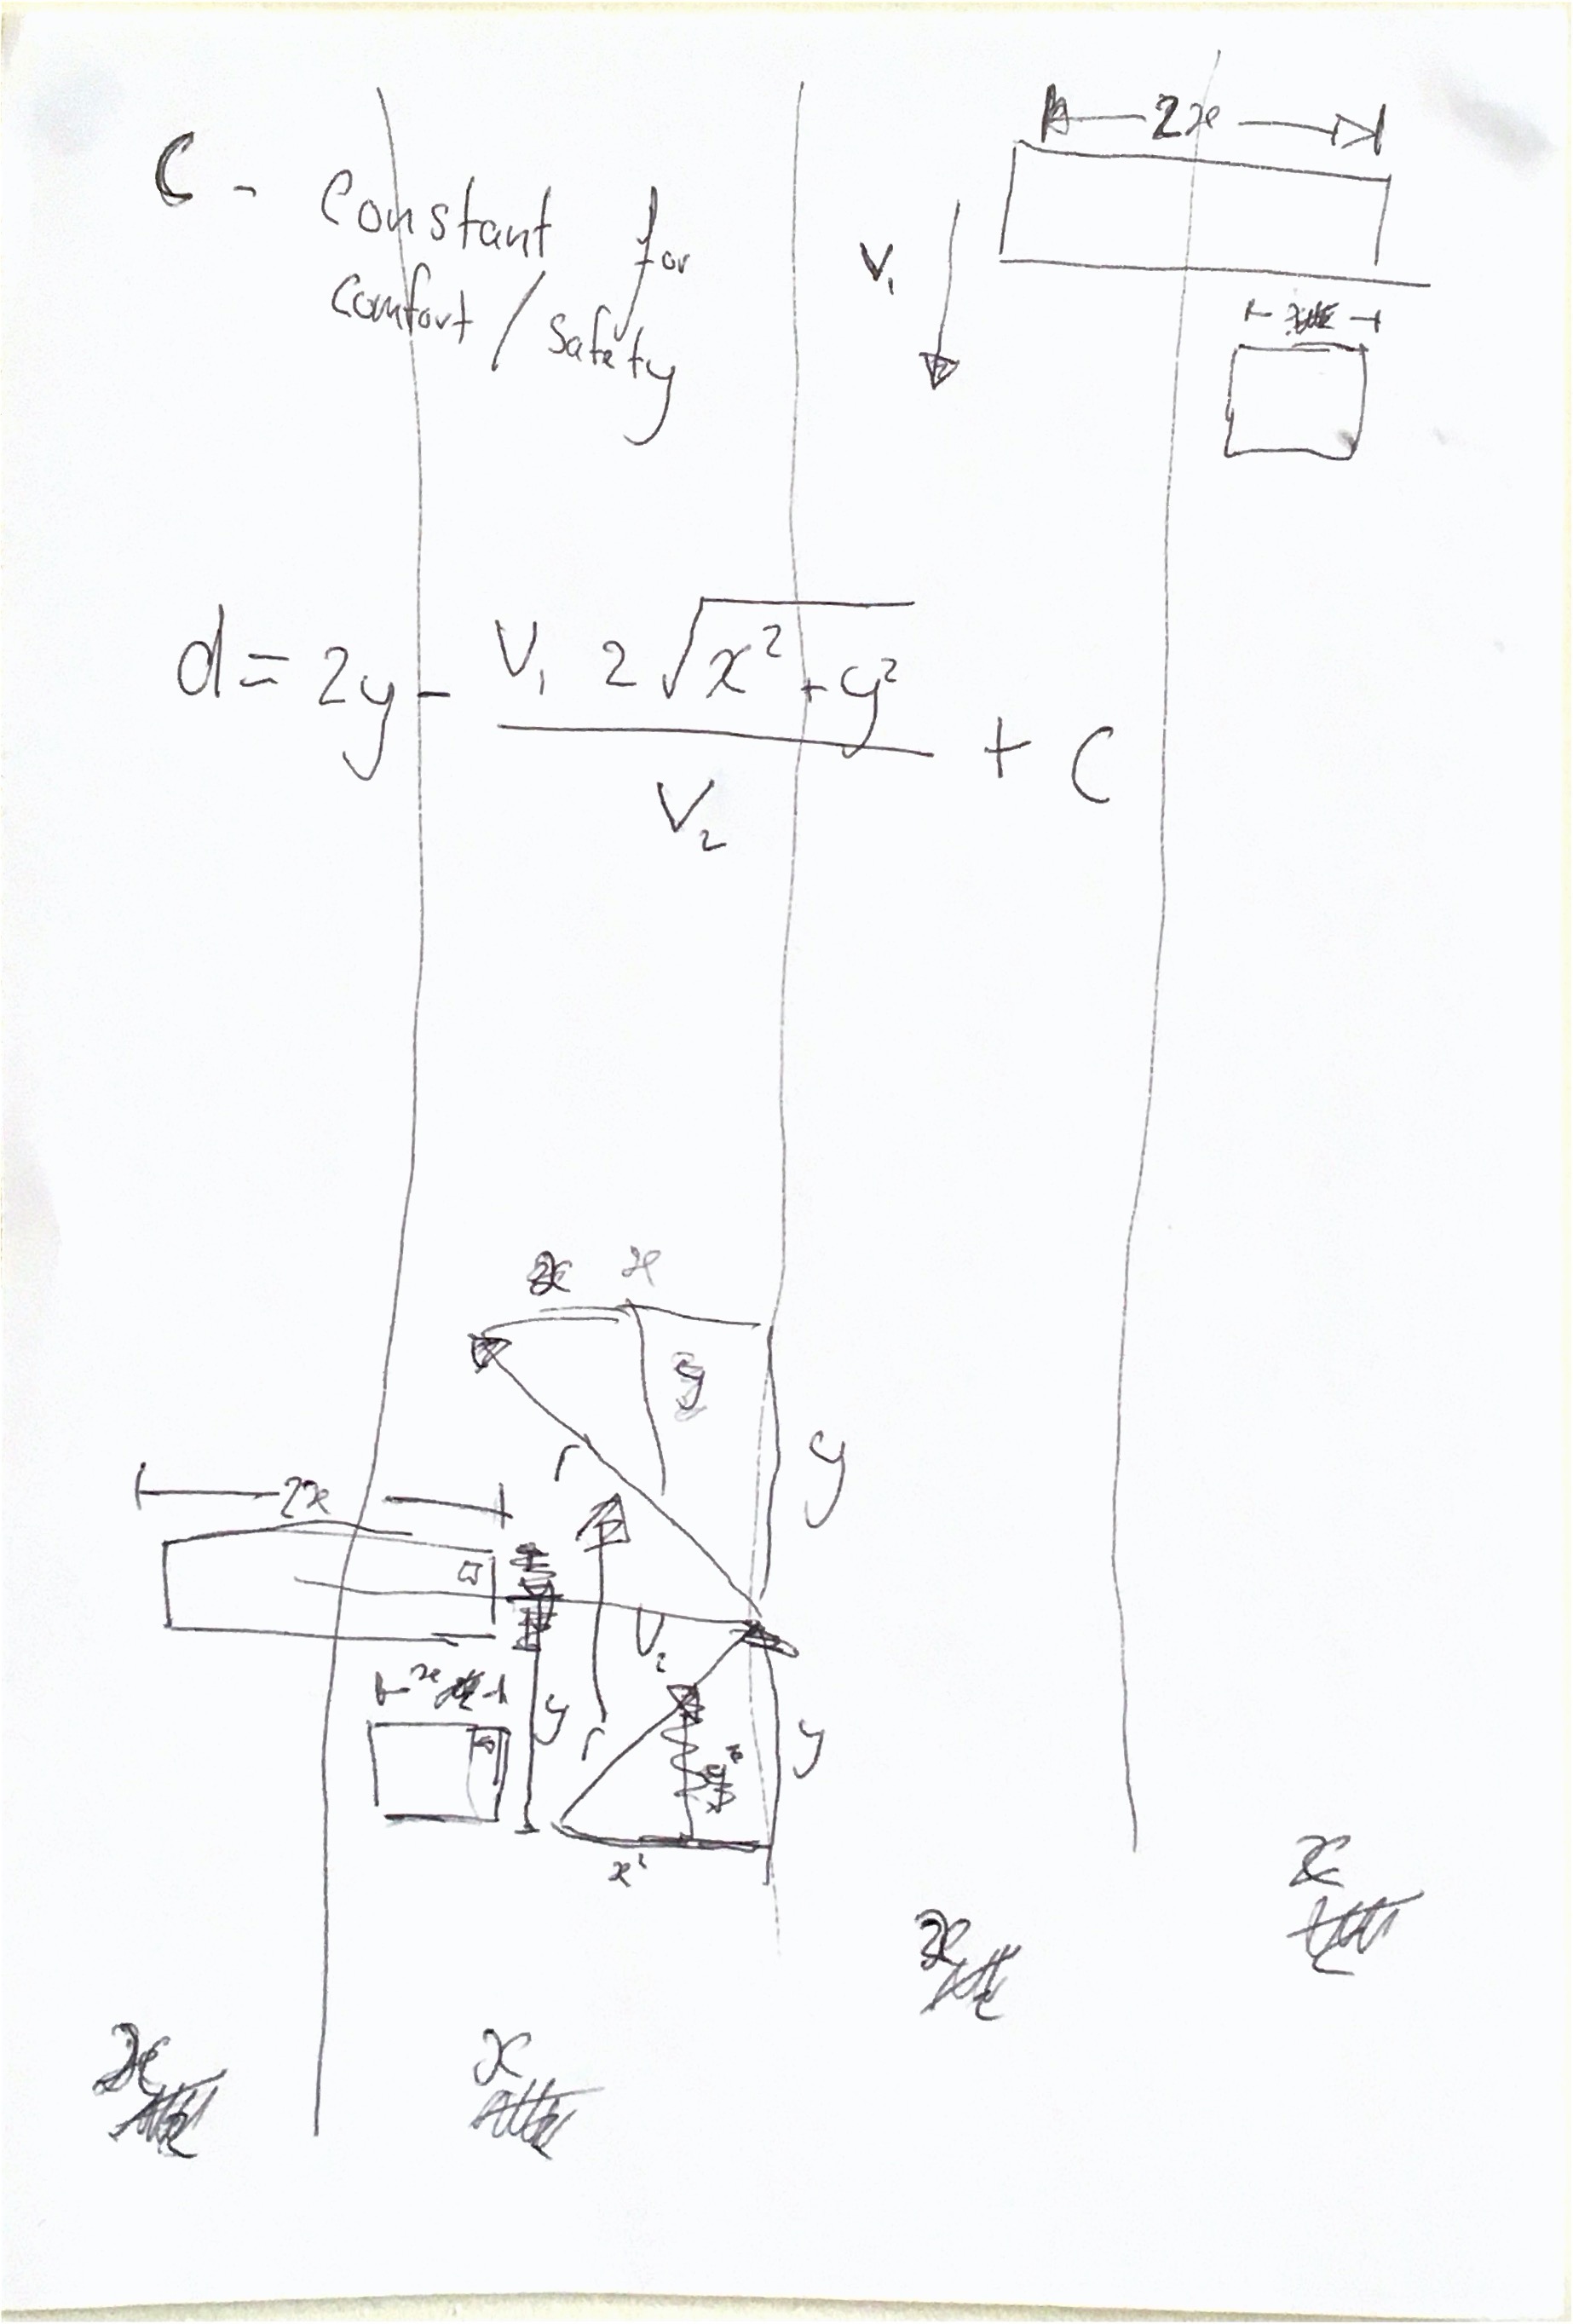 C - Constant for
comfort / safety
2x
V₁
d = 2y - V₁ 2√(x² + y²) / V₂ + C
x
y
r
y
2x
V₂
x
y
r
y
x²
x
x
x
x